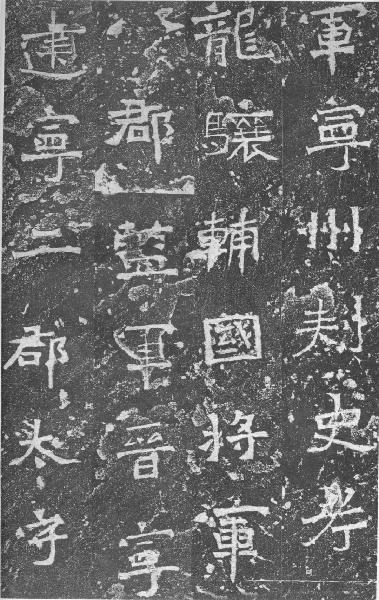 軍寧州刺史考
龍驤輔國將軍
郡監軍晉寧
建寧二郡太守